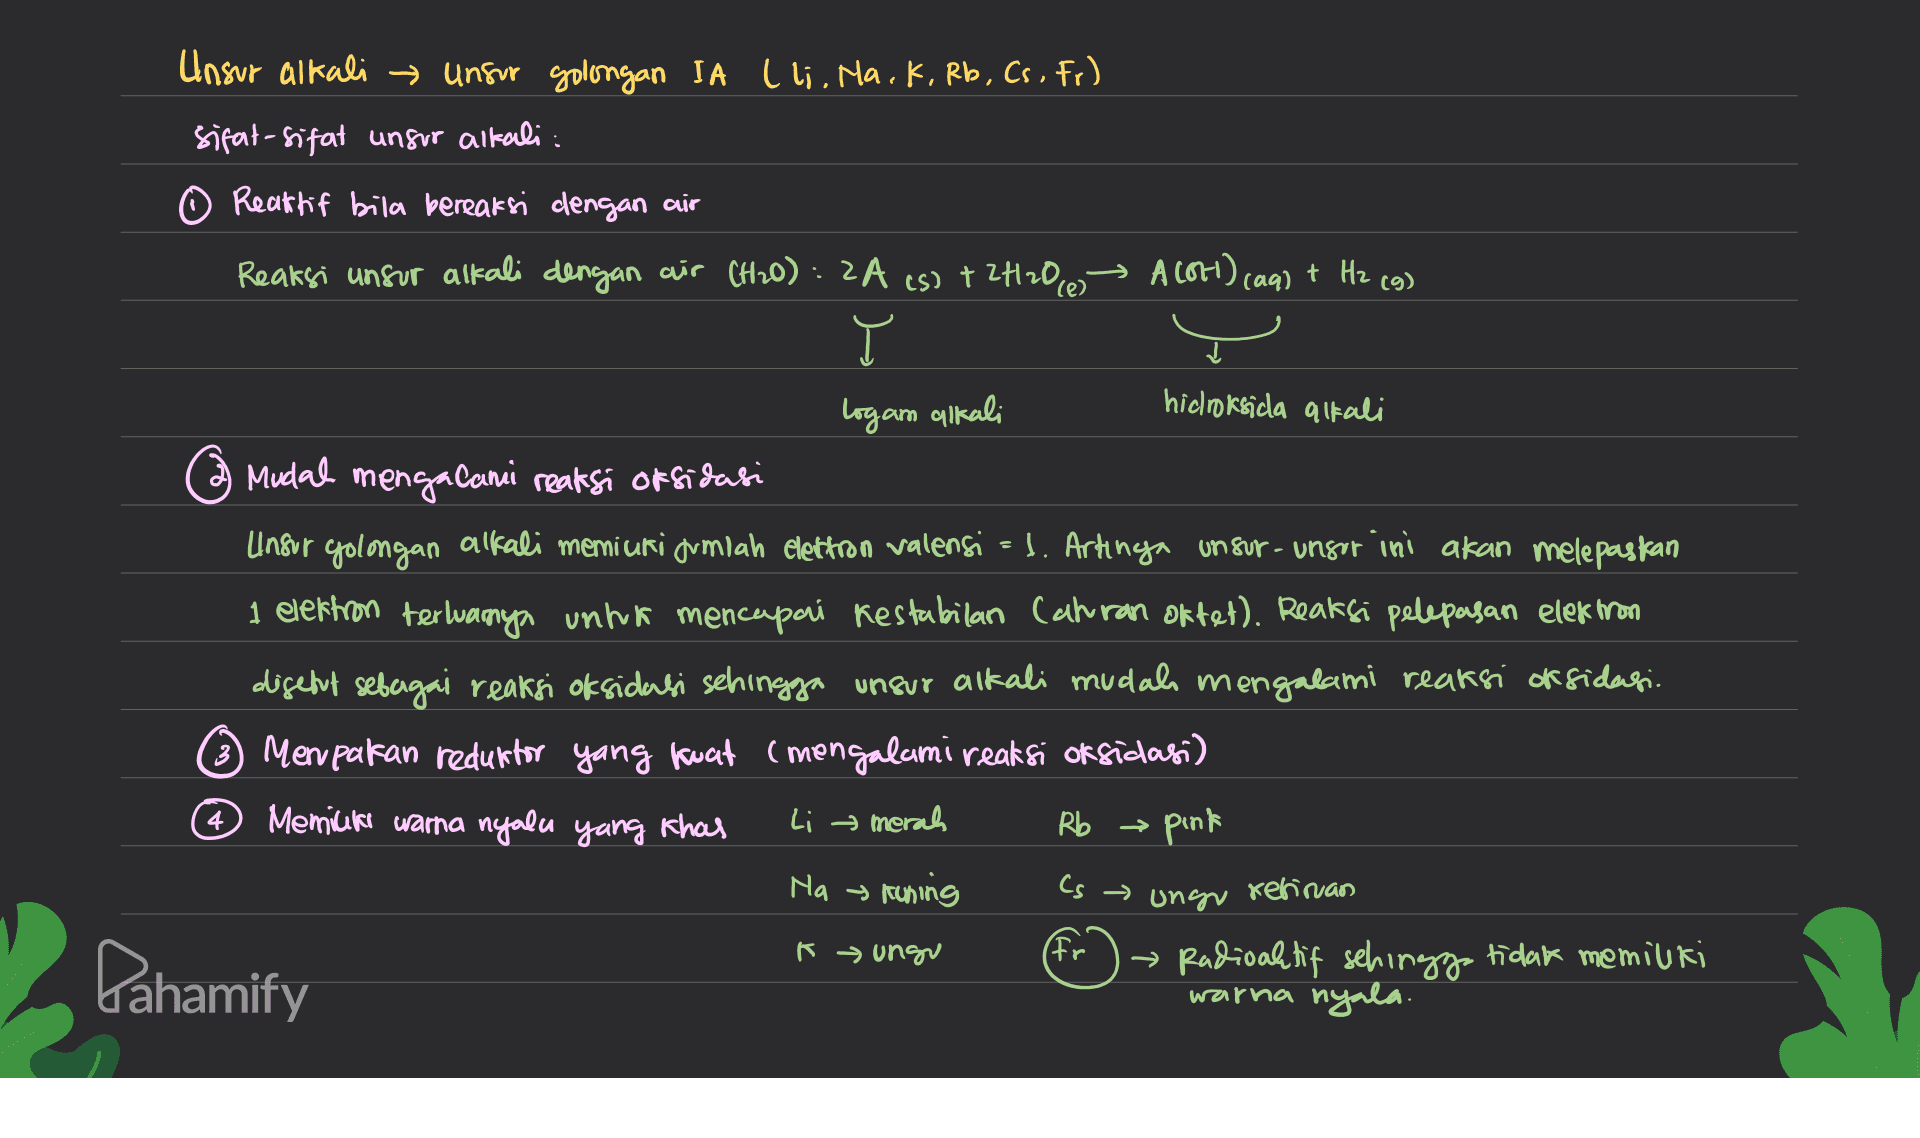 Unsur alkali → unsur golongan IA (Li, Na, K, Rb, Cs, Fr)
Sifat-sifat unsur alkali :
① Reaktif bila bereaksi dengan air
Reaksi unsur alkali dengan air (H₂O) : 2A (s) + 2H₂O(l) → A(OH) (aq) + H₂ (g)
logam alkali hidroksida alkali
② Mudah mengalami reaksi oksidasi
Unsur golongan alkali memiliki jumlah elektron valensi = 1. Artinya unsur-unsur ini akan melepaskan
1 elektron terluarnya untuk mencapai kestabilan (aturan oktet). Reaksi pelepasan elektron
disebut sebagai reaksi oksidasi sehingga unsur alkali mudah mengalami reaksi oksidasi.
③ Merupakan reduktor yang kuat (mengalami reaksi oksidasi)
④ Memiliki warna nyala yang khas Li → merah Rb → pink
Na → kuning Cs → ungu kebiruan
K → ungu Fr → Radioaktif sehingga tidak memiliki
warna nyala.
Pahamify